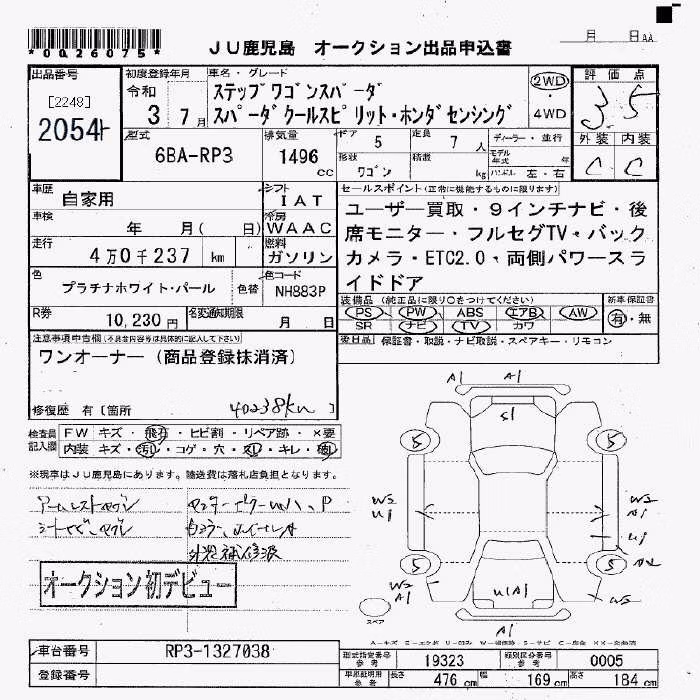 *0026075*
JU鹿児島 オークション出品申込書
月 日 AA
出品番号
[2248]
2054
初度登録年月
令和
3 7月
車名・グレード
ステップワゴンスパーダ
スパーダクールスピリット・ホンダセンシング
2WD
・
4WD
評価点
3.5
外装 内装
C C
型式
6BA-RP3
排気量
1496
cc
ドア 5
定員 7 人
ディーラー・並行
形状 ワゴン
積載 kg
モデル年式 年
ハンドル 左・右
車歴 自家用
シフト IAT
車検 年 月( 日)
冷房 WAAC
走行 4万0千237 km
燃料 ガソリン
色 プラチナホワイト・パール 色替
色コード NH883P
R券 10,230円
名変通知期限 月 日
セールスポイント(正常に機能するものに限ります)
ユーザー買取・9インチナビ・後
席モニター・フルセグTV・バック
カメラ・ETC2.0・両側パワースラ
イドドア
装備品 (純正品に限り○をつけてください)
PS PW ABS エアB AW
SR ナビ TV カワ
新車保証書
有・無
後日品 保証書・取説・ナビ取説・スペアキー・リモコン
注意事項申告欄(不具合内容等は具体的に記入して下さい)
ワンオーナー(商品登録抹消済)
修復歴 有[箇所 40238km ]
検査員記入欄
FW キズ・飛石・ヒビ割・リペア跡・×要
内装 キズ・汚レ・コゲ・穴・スレ・キレ
※現車はJU鹿児島にあります。陸送費は落札店負担となります。
オークション初デビュー
A1
A1
S1
5
5
W2
U1
W2
A1
U1
5
5
W2
A1
U1A1
A1
スペア
車台番号 RP3-1327038
登録番号
型式指定番号 参考 19323
類別区分番号 参考 0005
車庫証明用 参考
長さ 476 cm
幅 169 cm
高さ 184 cm